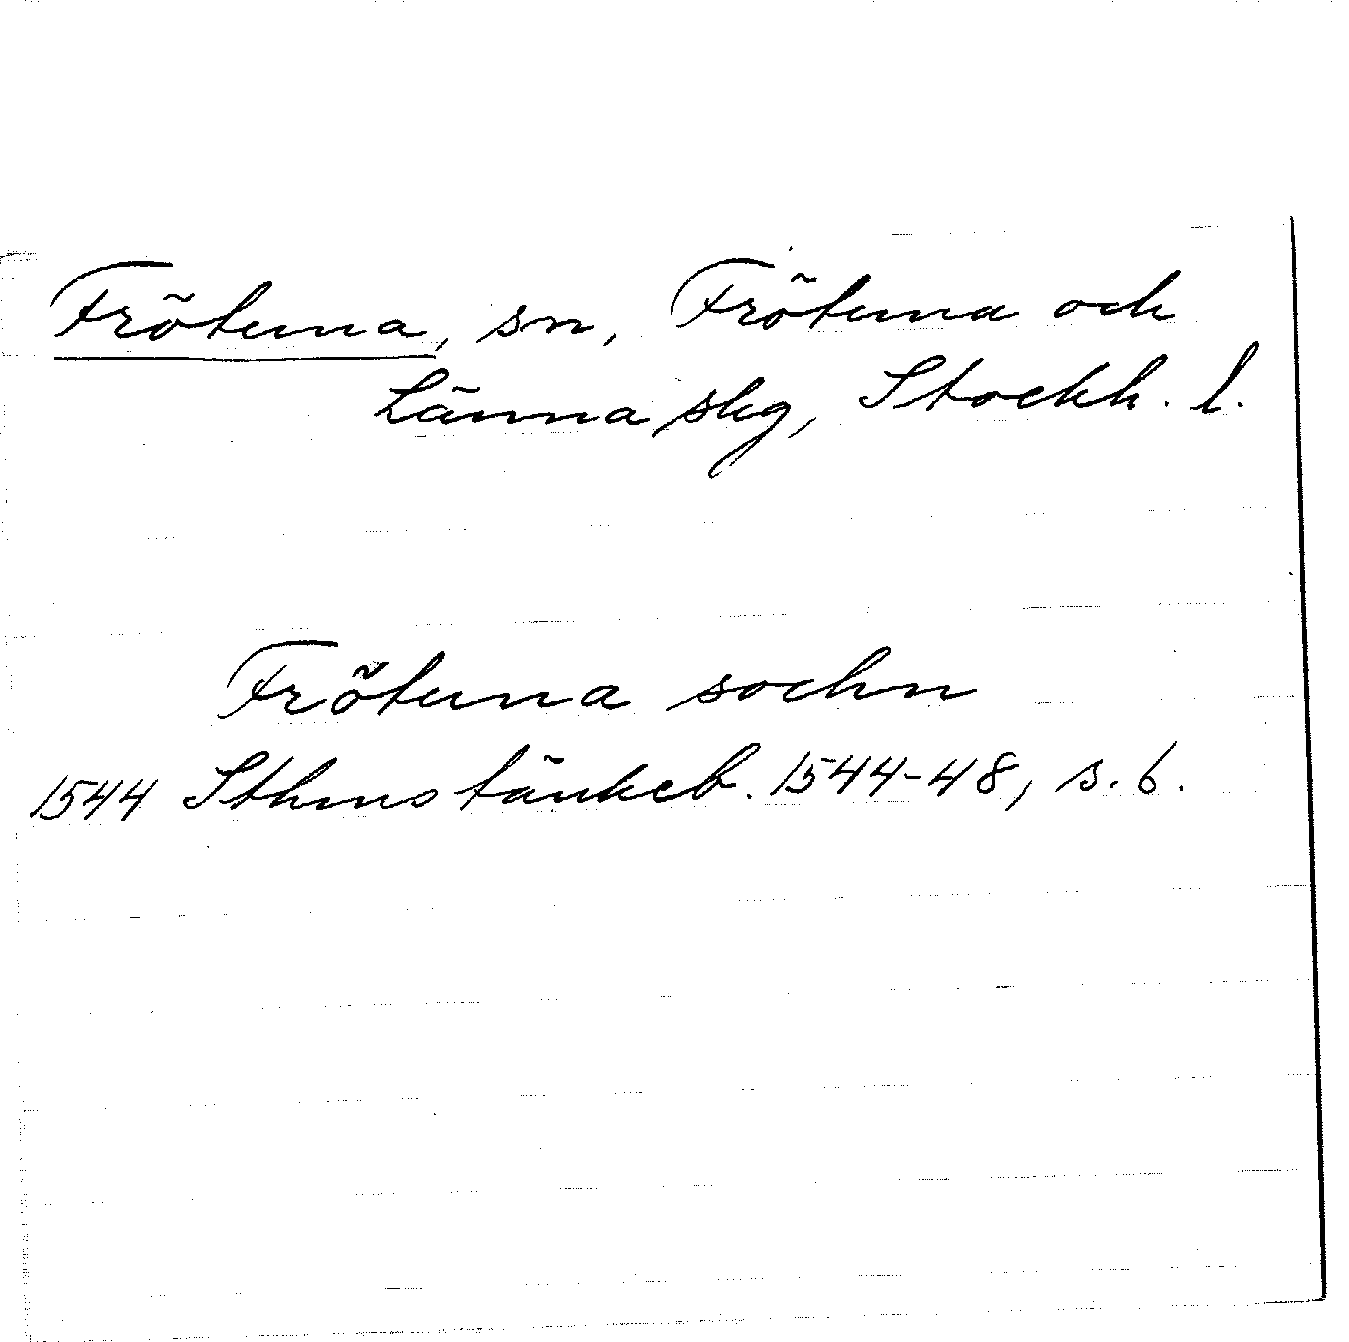 Frötuna, sn, Frötuna och
Länna skg, Stockh. l.
Frötuna sochn
1544 Sthms tänkeb. 1544-48, s. 6.